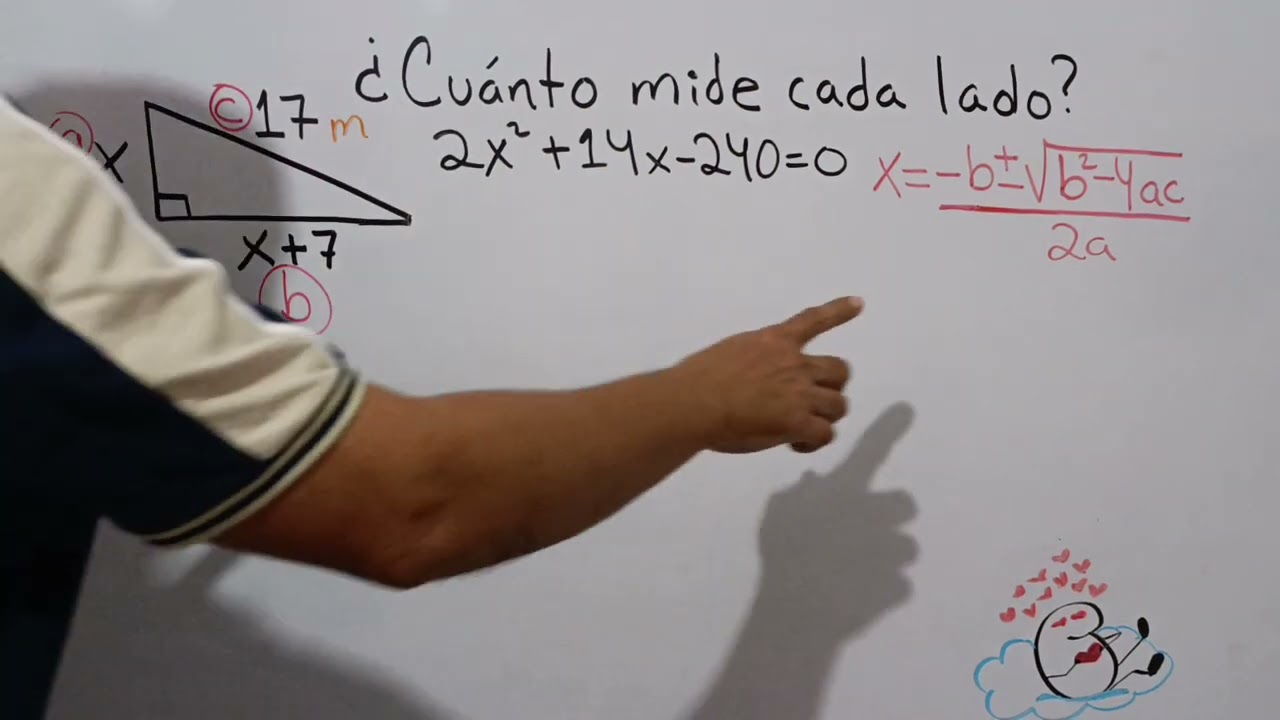 ¿Cuánto mide cada lado?
c 17 m
a x
2x²+14x-240=0
x=-b±√b²-4ac
2a
x+7
b